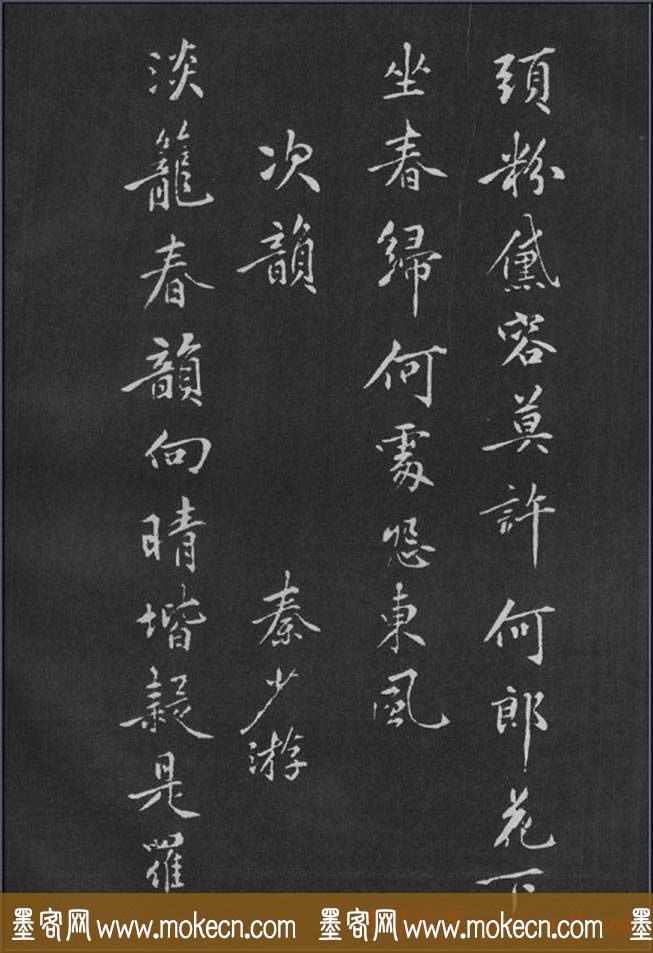 頭粉黛容莫許何郎花下
坐春歸何處怨東風
次韻 秦少游
淡籠春韻向晴堦疑是羅
墨客网 www.mokecn.com 墨客网 www.mokecn.com 墨客网